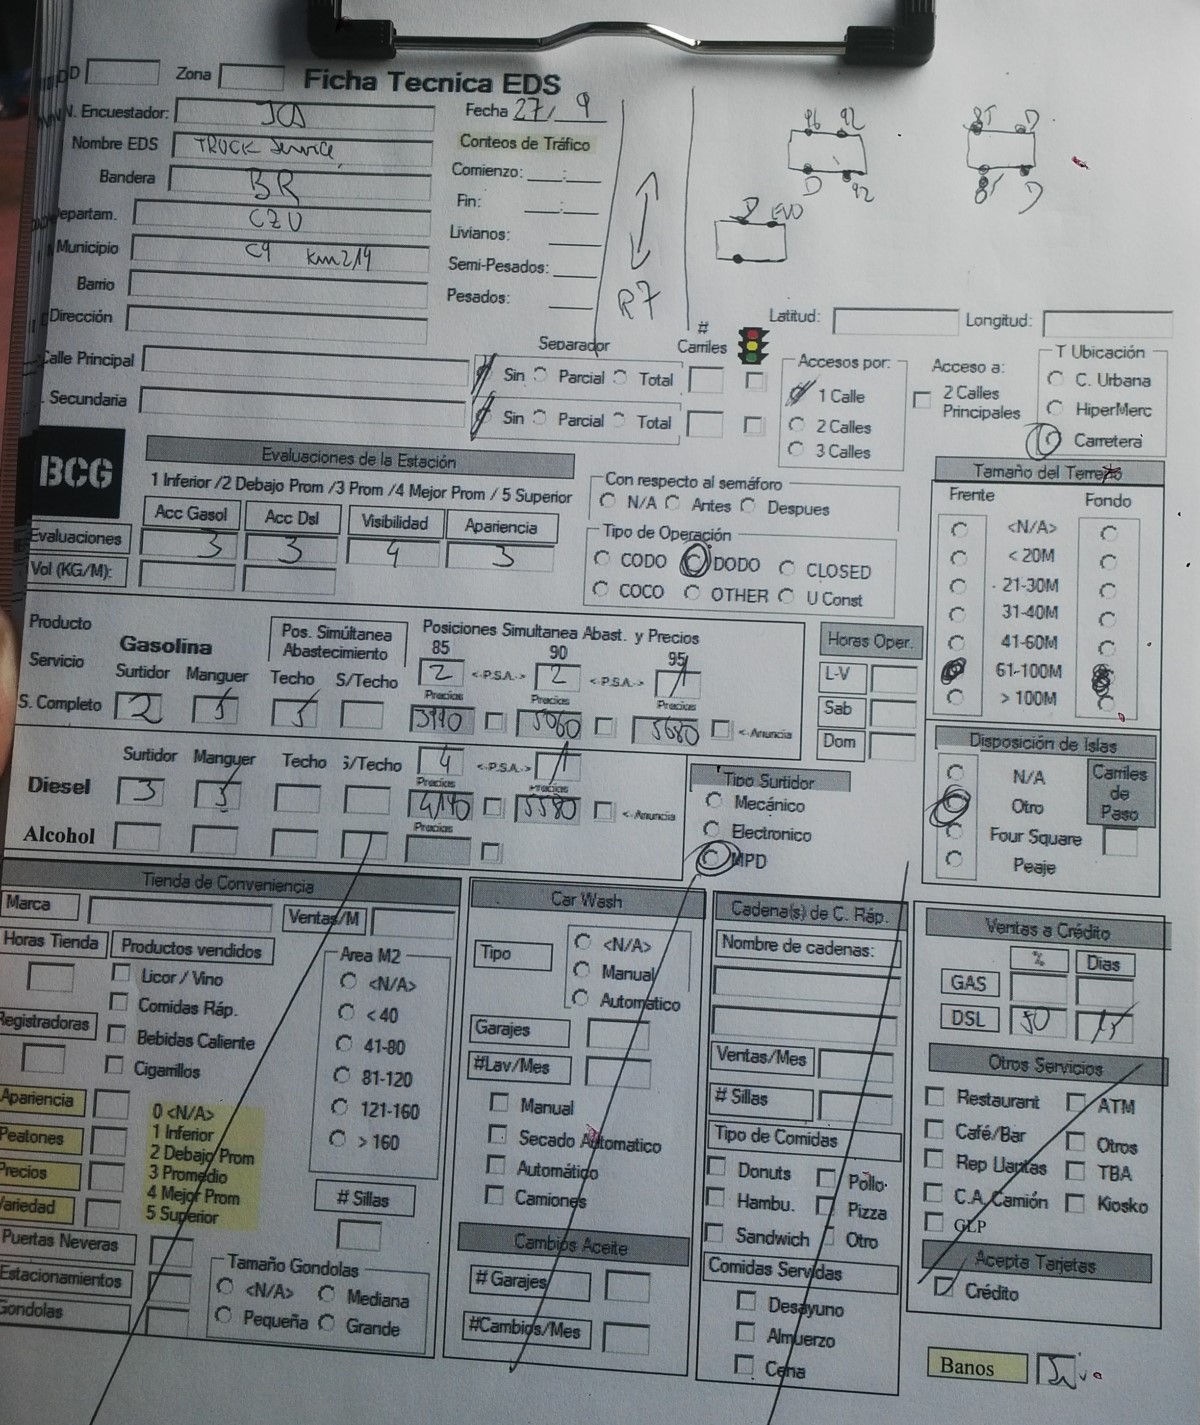 Zona
Ficha Tecnica EDS
N. Encuestador: JCD
Fecha 27/9
Nombre EDS TRUCK Service
Conteos de Tráfico
Bandera BR
Comienzo: __:__
Departam. CZU
Fin: __:__
Municipio C9 km 219
Livianos:
Barrio
Semi-Pesados:
Dirección
Pesados:
R7
96 92
D 92
85 D
85 D
D EVO
Latitud: Longitud:
Calle Principal
Separador # Carriles
Sin Parcial Total
Secundaria
Sin Parcial Total
Accesos por:
1 Calle
2 Calles
3 Calles
Acceso a:
2 Calles
Principales
T Ubicación
C. Urbana
HiperMerc
Carretera
BCG
Evaluaciones de la Estación
1 Inferior /2 Debajo Prom /3 Prom /4 Mejor Prom / 5 Superior
Acc Gasol Acc Dsl Visibilidad Apariencia
Evaluaciones 3 3 4 3
Vol (KG/M):
Con respecto al semáforo
N/A Antes Despues
Tipo de Operación
CODO DODO CLOSED
COCO OTHER U Const
Tamaño del Terreno
Frente Fondo
<N/A>
< 20M
21-30M
31-40M
41-60M
61-100M
> 100M
Producto
Servicio
Gasolina
Pos. Simúltanea
Abastecimiento
Posiciones Simultanea Abast. y Precios
85 90 95
Surtidor Manguer Techo S/Techo 2 <-P.S.A.-> 2 <-P.S.A.-> 1
Precios Precios Precios
S. Completo 2 5 5 5060 5680 <-Anuncia
Horas Oper.
L-V
Sab
Dom
Surtidor Manguer Techo S/Techo 4 <-P.S.A.-> 1
Precios Precios
Diesel 3 5 5580 <-Anuncia
Precios
Alcohol
Tipo Surtidor
Mecánico
Electronico
MPD
Disposición de Islas
N/A
Otro
Four Square
Peaje
Carriles
de
Paso
Tienda de Conveniencia
Marca Ventas/M
Horas Tienda Productos vendidos
Licor / Vino
Comidas Ráp.
Registradoras
Bebidas Caliente
Cigarrillos
Area M2
<N/A>
< 40
41-80
81-120
121-160
> 160
Apariencia
Peatones
Precios
Variedad
0 <N/A>
1 Inferior
2 Debajo Prom
3 Promedio
4 Mejor Prom
5 Superior
# Sillas
Puertas Neveras
Estacionamientos
Gondolas
Tamaño Gondolas
<N/A> Mediana
Pequeña Grande
Car Wash
Tipo
<N/A>
Manual
Automatico
Garajes
#Lav/Mes
Manual
Secado Automatico
Automático
Camiones
Cambios Aceite
# Garajes
#Cambios/Mes
Cadena(s) de C. Ráp.
Nombre de cadenas:
Ventas/Mes
# Sillas
Tipo de Comidas
Donuts Pollo
Hambu. Pizza
Sandwich Otro
Comidas Servidas
Desayuno
Almuerzo
Cena
Ventas a Crédito
% Dias
GAS
DSL 50 15
Otros Servicios
Restaurant ATM
Café/Bar Otros
Rep Llantas TBA
C.A. Camión Kiosko
GLP
Acepta Tarjetas
Crédito
Banos